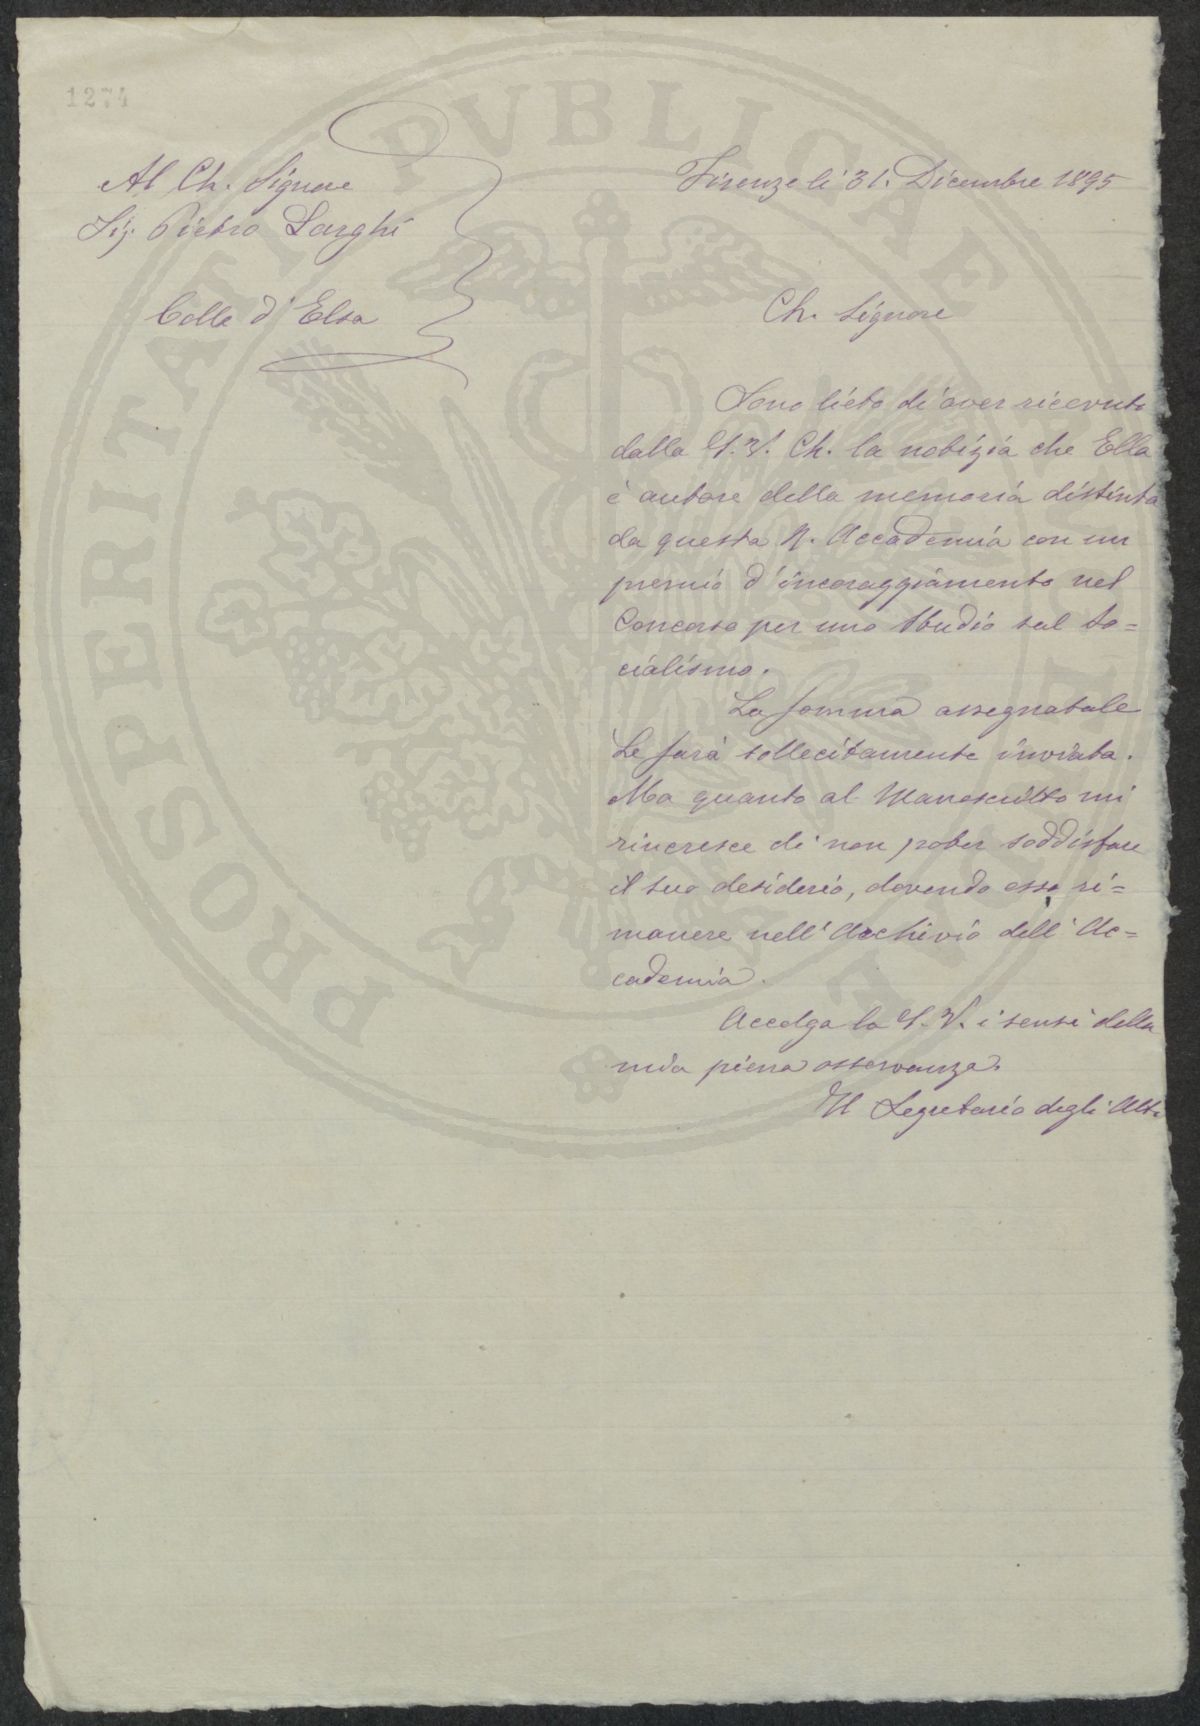 1274
Al Ch. Signore
Sig. Pietro Larghi
Colle d'Elsa
Firenze li 31. Dicembre 1895
Ch. Signore
Sono lieto di aver ricevuto
dalla S. V. Ch. la notizia che Ella
è autore della memoria distinta
da questa R. Accademia con un
premio d'incoraggiamento nel
Concorso per uno Studio sul So=
cialismo.
La somma assegnatale
Le sarà sollecitamente inviata.
Ma quanto al Manoscritto mi
rincresce di non poter soddisfare
il suo desiderio, dovendo esso ri=
manere nell'Archivio dell'Ac=
cademia.
Accolga la S. V. i sensi della
mia piena osservanza.
Il Segretario degli Atti
PROSPERITATI PVBLICAE